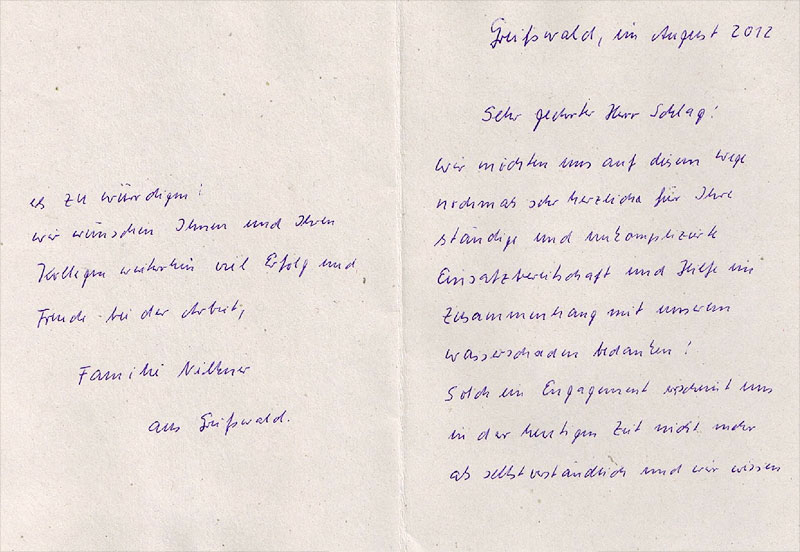 Greifswald, im August 2012
Sehr geehrter Herr Schlag!
wir möchten uns auf diesem Wege
nochmals sehr herzlich für Ihre
ständige und unkomplizierte
Einsatzbereitschaft und Hilfe im
Zusammenhang mit unserem
Wasserschaden bedanken!
Solch ein Engagement erscheint uns
in der heutigen Zeit nicht mehr
als selbstverständlich und wir wissen
es zu würdigen!
Wir wünschen Ihnen und Ihren
Kollegen weiterhin viel Erfolg und
Freude bei der Arbeit,
Familie
aus Greifswald.